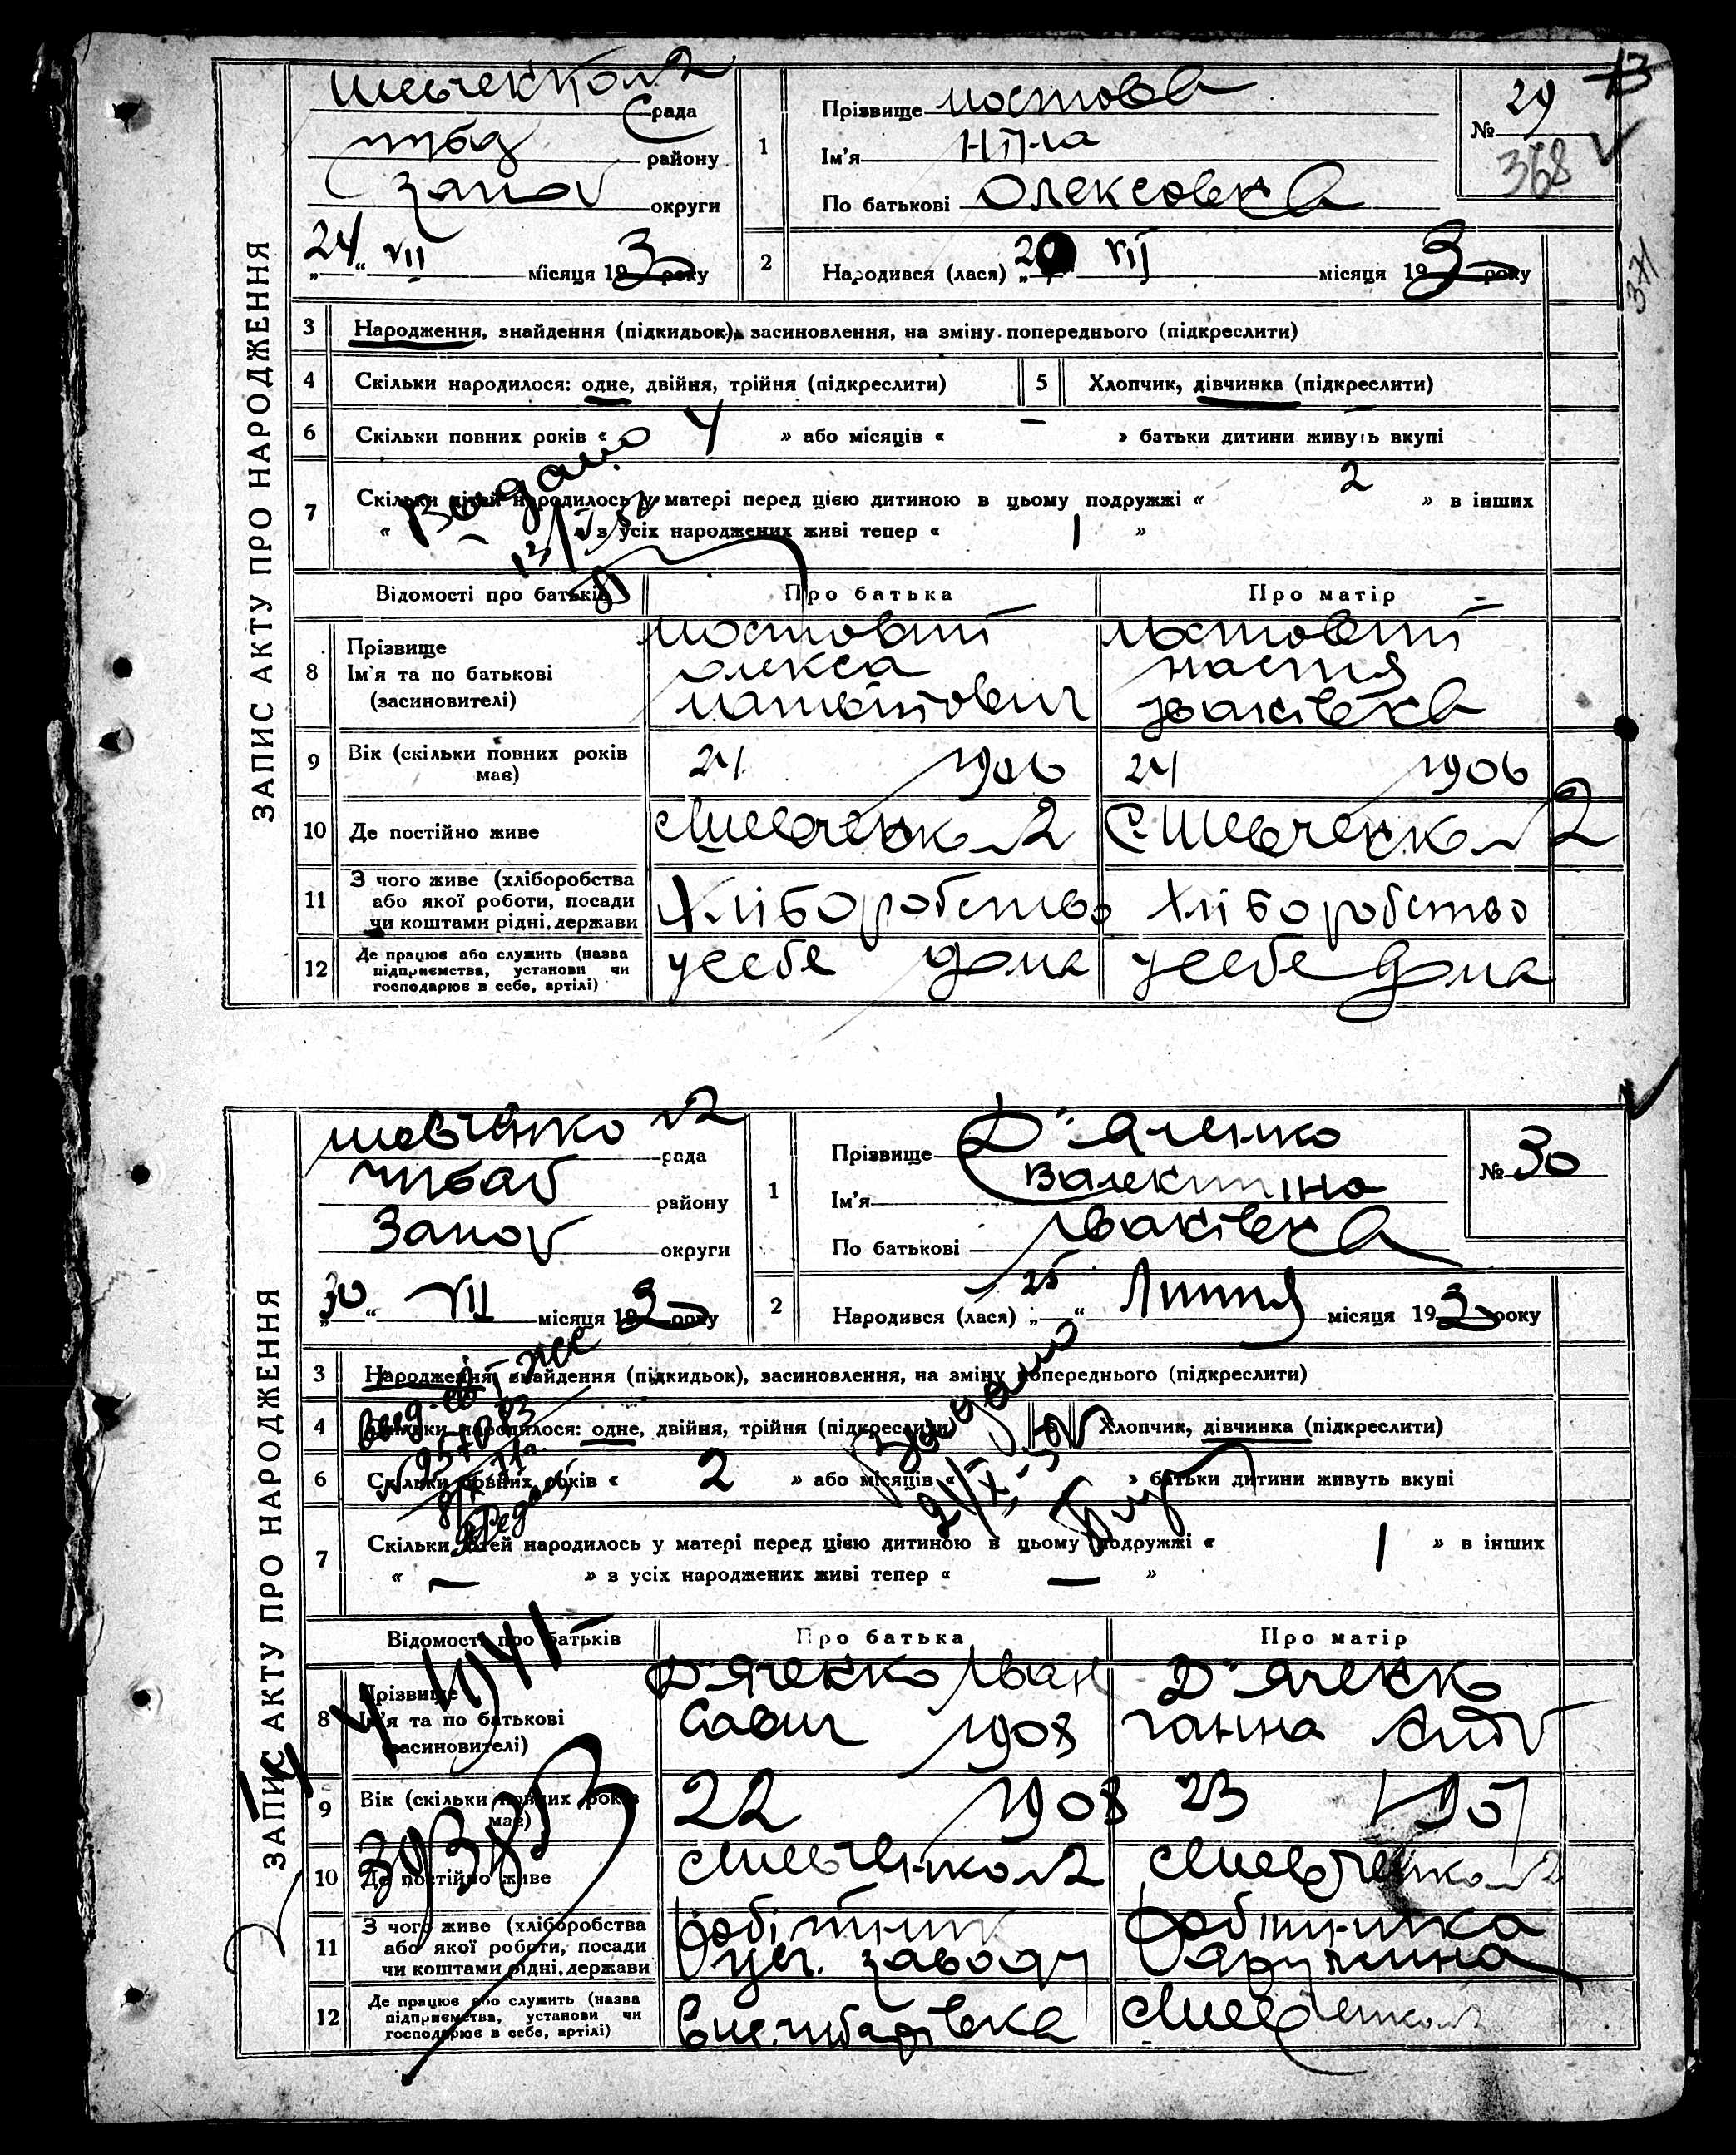 ЗАПИС АКТУ ПРО НАРОДЖЕННЯ
рада
району
Запор округи
24 VII місяця 193 року
1 Прізвище Мостова
Ім'я Ніна
По батькові Олексовна
№ 29
368
371
2 Народився (лася) VII місяця 193 року
3 Народження, знайдення (підкидьок), засиновлення, на зміну попереднього (підкреслити)
4 Скільки народилося: одне, двійня, трійня (підкреслити) 5 Хлопчик, дівчинка (підкреслити)
6 Скільки повних років « 4 » або місяців « – » батьки дитини живуть вкупі
7 Скільки дітей народилось у матері перед цією дитиною в цьому подружжі « 2 » в інших
« – » з усіх народжених живі тепер « 1 »
Видано
Відомості про батьків Про батька Про матір
8 Прізвище Мостовий Мостовий
Ім'я та по батькові Олекса Настя
(засиновителі) Іваківна
9 Вік (скільки повних років має) 24 1906 24 1906
10 Де постійно живе с Шевченко №2 С. Шевченко №2
11 З чого живе (хліборобства або якої роботи, посади чи коштами рідні, держави Хліборобство Хліборобство
12 Де працює або служить (назва підприємства, установи чи господарює в себе, артілі) у себе дома у себе дома
ЗАПИС АКТУ ПРО НАРОДЖЕННЯ
Шевченко №2 рада
Чубар району
Запор округи
30 VII місяця 193 року
1 Прізвище Д'яченко
Ім'я Валентина
По батькові Іваківна
№ 30
2 Народився (лася) „25“ Липня місяця 193 року
3 Народження, знайдення (підкидьок), засиновлення, на зміну попереднього (підкреслити)
4 Скільки народилося: одне, двійня, трійня (підкреслити) 5 Хлопчик, дівчинка (підкреслити)
6 Скільки повних років « 2 » або місяців « » батьки дитини живуть вкупі
7 Скільки дітей народилось у матері перед цією дитиною в цьому подружжі « 1 » в інших
« – » з усіх народжених живі тепер « – »
Відомості про батьків Про батька Про матір
8 Прізвище Д'яченко Іван Д'яченко
Ім'я та по батькові Савич 1908 Ганна
(засиновителі)
9 Вік (скільки повних років має) 22 1908 23 1907
10 Де постійно живе с Шевченко №2 с Шевченко №2
11 З чого живе (хліборобства або якої роботи, посади чи коштами рідні, держави робітник цег. заводу робітника дружина
12 Де працює або служить (назва підприємства, установи чи господарює в себе, артілі)